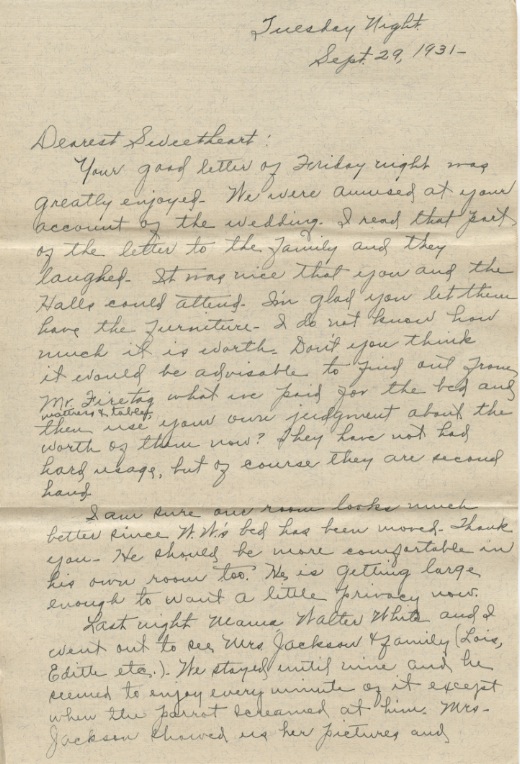 Tuesday Night
Sept. 29, 1931-
Dearest Sweetheart:
Your good letter of Friday night was
greatly enjoyed- We were amused at your
account of the wedding. I read that part
of the letter to the family and they
laughed- It was nice that you and the
Halls could attend. I'm glad you let them
have the furniture- I do not know how
much it is worth. Don't you think
it would be advisable to find out from
Mr. Firetag what we paid for the bed and
mattress & table,
then use your own judgment about the
worth of them now? They have not had
hard usage, but of course they are second
hand.
I am sure our room looks much
better since W.W.'s bed has been moved- Thank
you- He should be more comfortable in
his own room too. He is getting large
enough to want a little privacy now.
Last night Mama Walter White and I
went out to see Mrs Jackson & family (Lois,
Edith etc.). We stayed until nine and he
seemed to enjoy every minute of it except
when the parrot screamed at him. Mrs-
Jackson showed us her pictures and